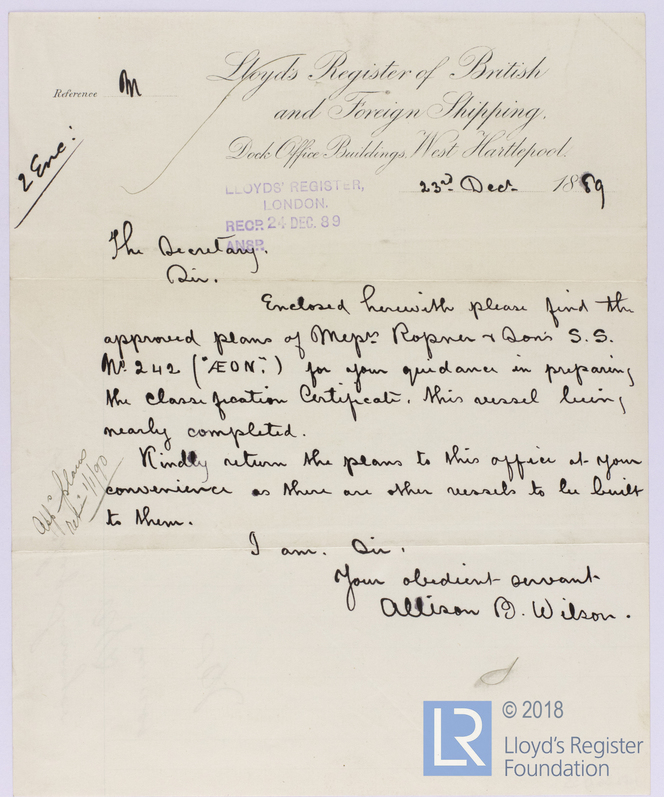 Lloyd's Register of British
and Foreign Shipping.
Reference M
Dock Office Buildings, West Hartlepool.
2 Enc:
23rd Decr. 1889
LLOYDS' REGISTER,
LONDON.
RECP. 24 DEC. 89
ANSR.
The Secretary.
Sir.
Enclosed herewith please find the
approved plans of Messrs Ropner & Son's S.S.
No 242 ("ÆON".) for your guidance in preparing
the classification Certificate, this vessel being
nearly completed.
Kindly return the plans to this office at your
convenience as there are other vessels to be built
to them.
plans
1/1/90
I am. Sir.
Your obedient servant
Allison B. Wilson.
LR
© 2018
Lloyd's Register
Foundation